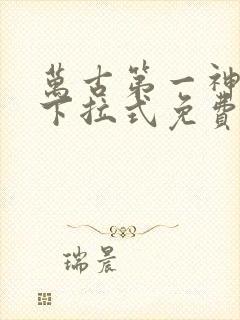 萬古第一神
下拉式免費
瑞晨